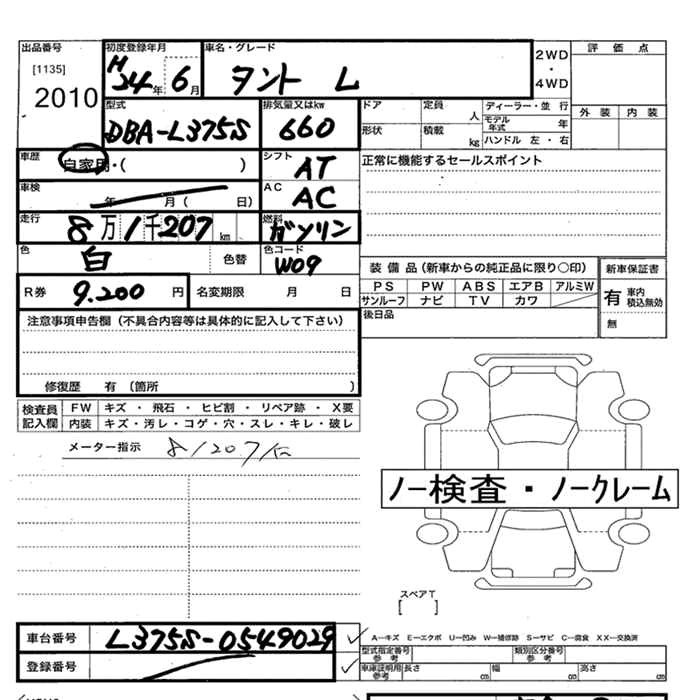 出品番号 初度登録年月 車名・グレード 2WD・4WD 評価点
[1135] H24年 6月 タント L 外装 内装
2010
型式 排気量又はkw ドア 定員 人 ディーラー・並行
DBA-L375S 660 形状 積載 kg モデル年式 年
ハンドル 左・右
車歴 自家用・( ) シフト AT 正常に機能するセールスポイント
車検 年 月( 日) AC AC
走行 8万1千207km 燃料 ガソリン
色 白 色替 色コード W09
装備品(新車からの純正品に限り○印) 新車保証書
R券 9.200円 名変期限 月 日 PS PW ABS エアB アルミW 有 車内積込無効
サンルーフ ナビ TV カワ 無
注意事項申告欄(不具合内容等は具体的に記入して下さい) 後日品
修復歴 有(箇所 )
検査員記入欄 FW キズ・飛石・ヒビ割・リペア跡・X要
内装 キズ・汚レ・コゲ・穴・スレ・キレ・破レ
メーター指示 81207㎞
ノー検査・ノークレーム
スペアT
[ ]
車台番号 L375S-0549029 A―キズ E―エクボ U―凹み W―補修跡 S―サビ C―腐食 XX―交換済
型式指定番号 参考 類別区分番号 参考
登録番号 車庫証明用 参考 長さ cm 幅 cm 高さ cm